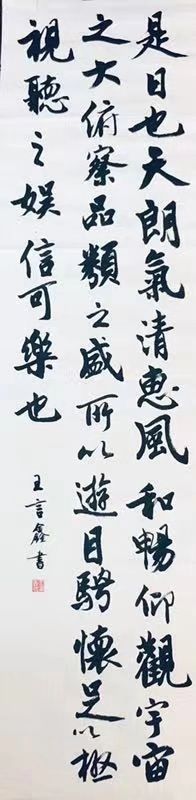 是日也天朗氣清惠風和暢仰觀宇宙
之大俯察品類之盛所以遊目騁懷足以極
視聽之娛信可樂也
王言鑫書